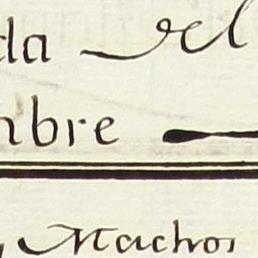 da del
nbre
y Machos